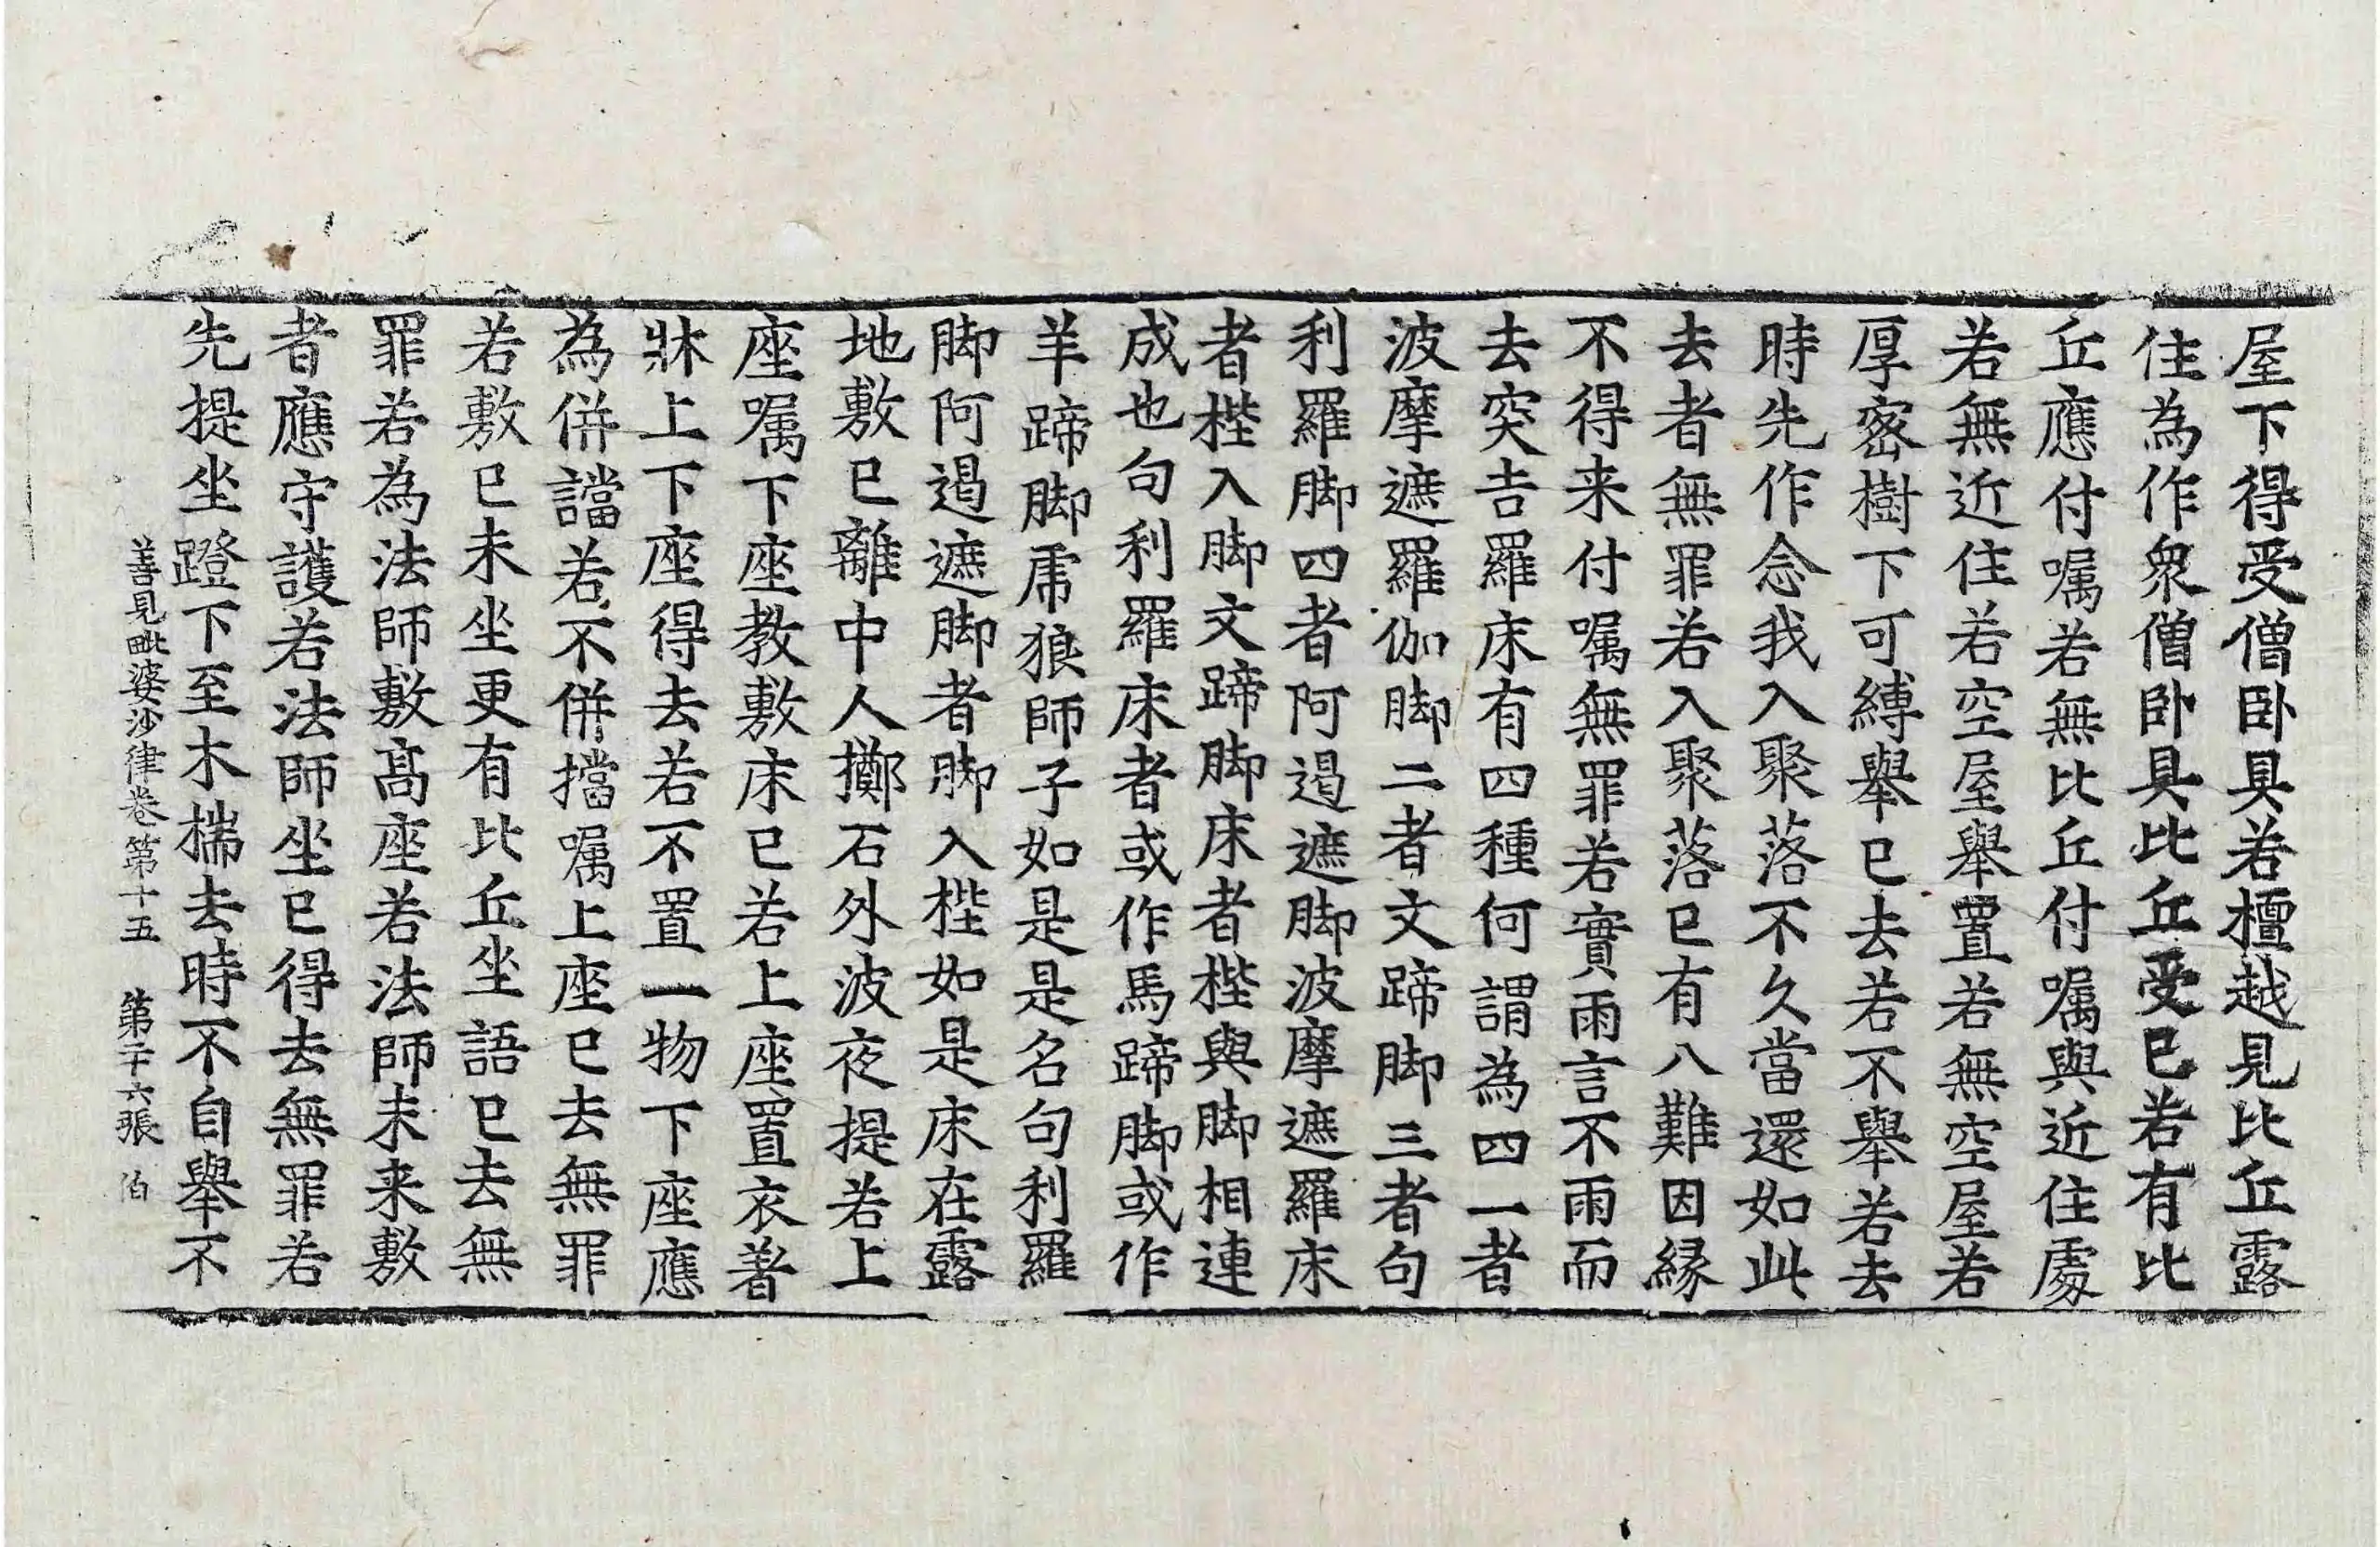 屋下得受僧卧具若檀越見比丘露
住為作衆僧卧具比丘受已若有比
丘應付嘱若無比丘付嘱與近住處
若無近住若空屋舉置若無空屋若
厚宻樹下可縛舉已去若不舉若去
時先作念我入聚落不久當還如此
去者無罪若入聚落已有八難因縁
不得来付嘱無罪若實雨言不雨而
去突吉羅床有四種何謂為四一者
波摩遮羅伽脚二者文蹄脚三者句
利羅脚四者阿遏遮脚波摩遮羅床
者梐入脚文蹄脚床者梐與脚相連
成也句利羅床者或作馬蹄脚或作
羊蹄脚乕狼師子如是是名句利羅
脚阿遏遮脚者脚入梐如是床在露
地敷已離中人擲石外波夜提若上
座嘱下座教敷床已若上座置衣著
牀上下座得去若不置一物下座應
為併譡若不併擋嘱上座已去無罪
若敷已未坐更有比丘坐語已去無
罪若為法師敷髙座若法師未来敷
者應守護若法師坐已得去無罪若
先提坐蹬下至木揣去時不自舉不
善見毗婆沙律卷第十五 第二十六張 伯